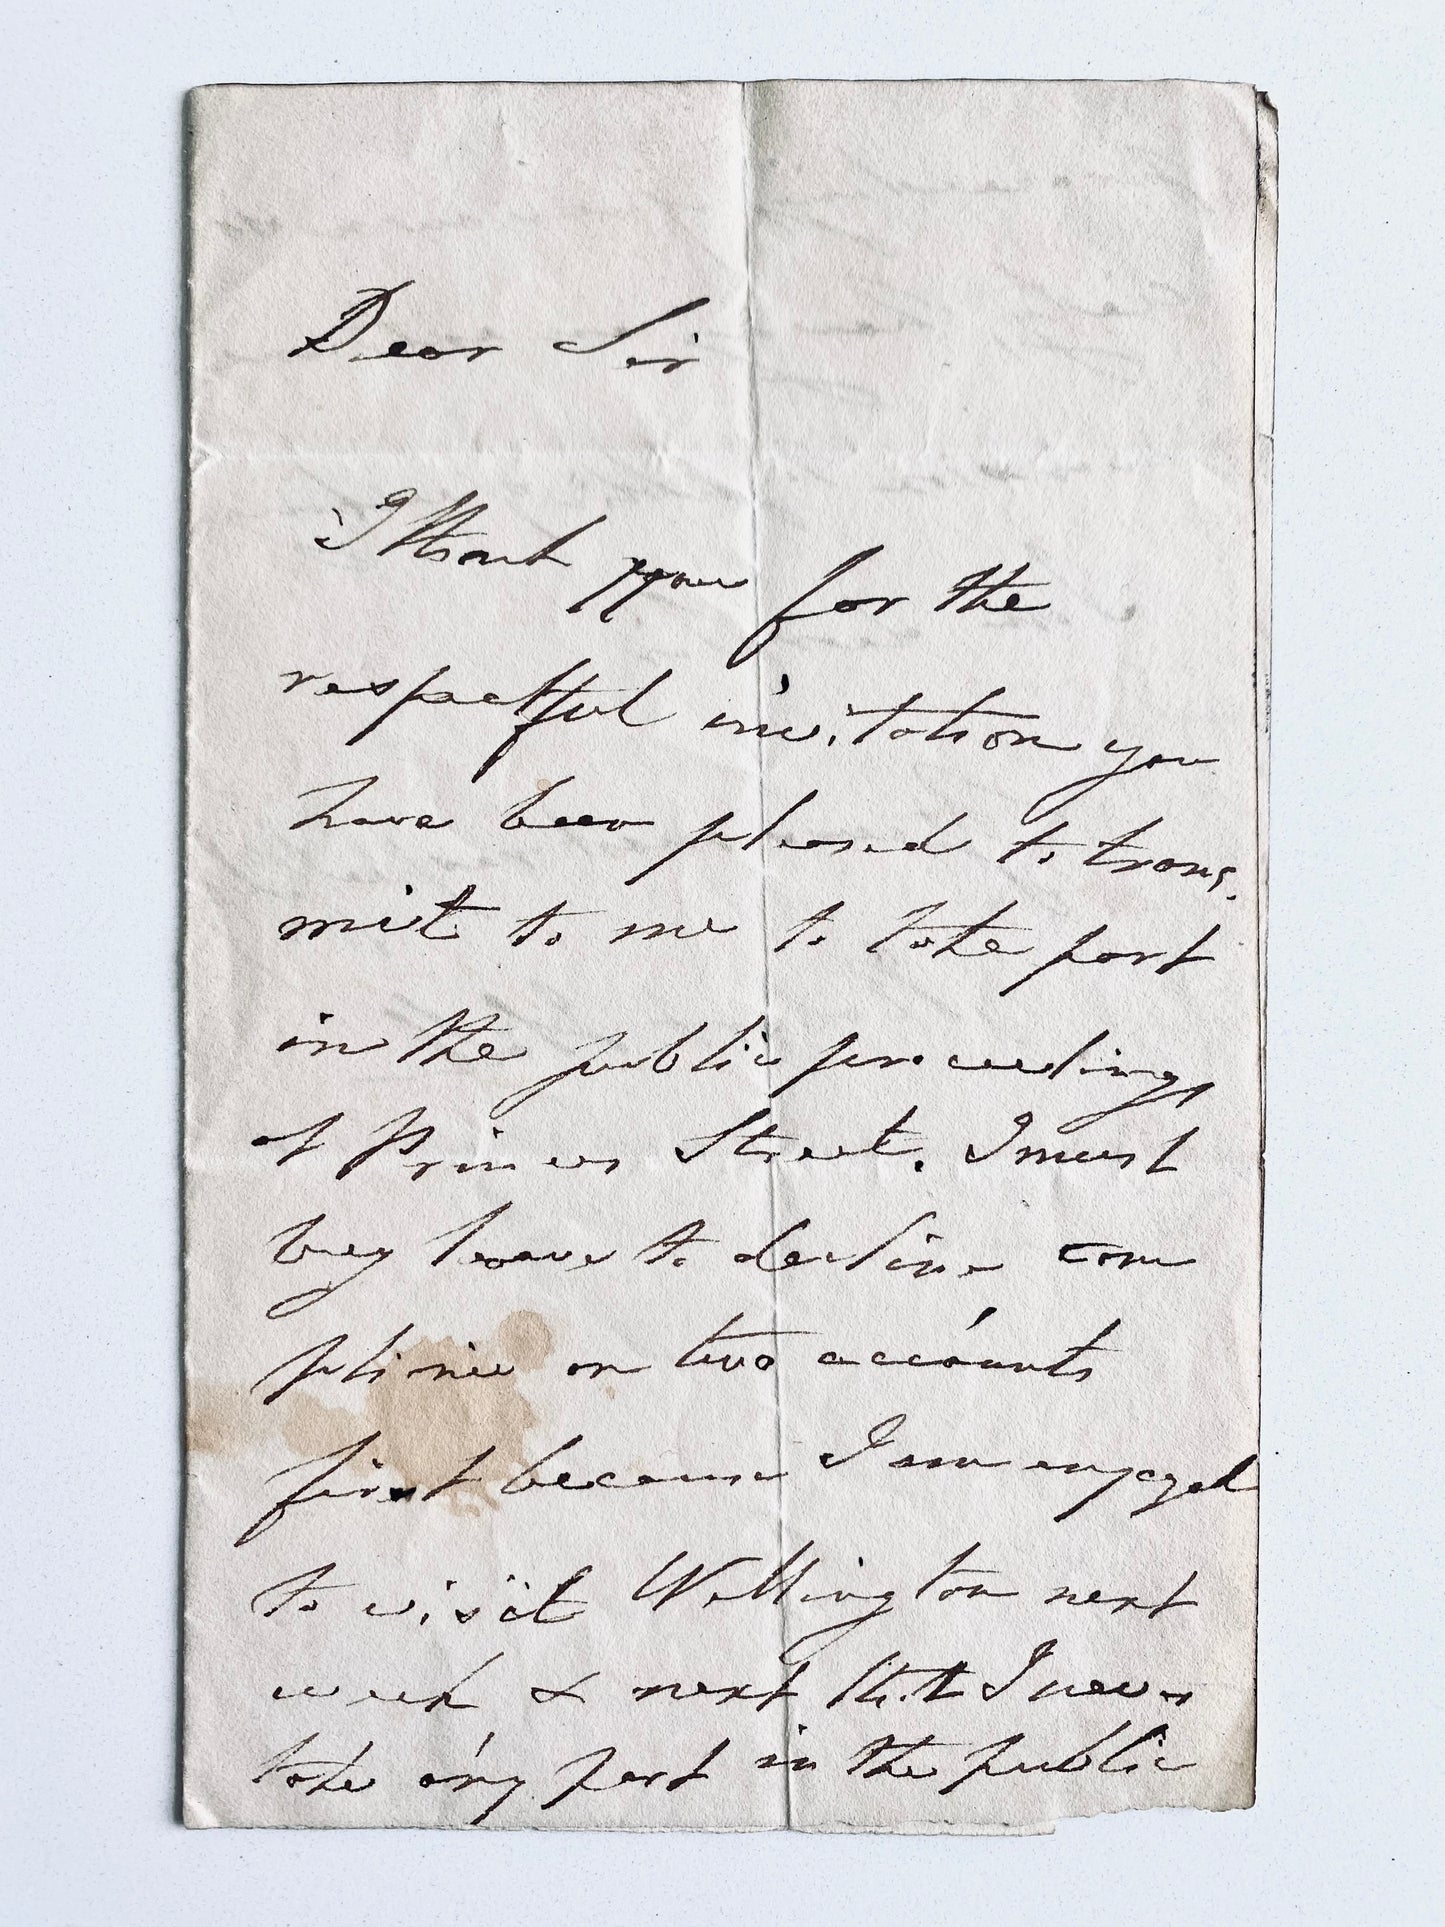 Dear Sir
I thank you for the
respectful invitation you
have been pleased to trans.
mit to me to take part
in the public proceedings
of Princes Street. I must
beg leave to decline com
on two accounts
first because I am engaged
to visit Wellington next
week & next that I never
take any part in the public